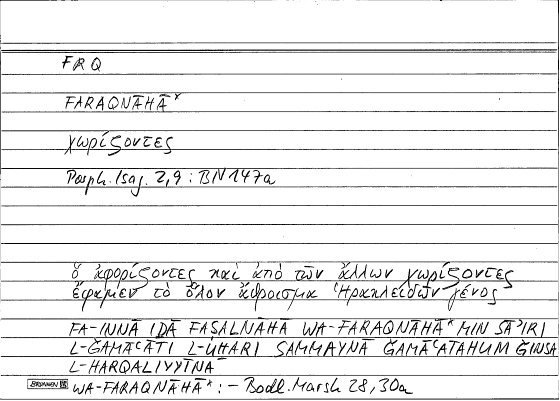 FRQ
FARAQNĀHĀ*
χωρίζοντες
Porph. Isag. 2,9 : BN 147a
ὃ ἀφορίζοντες καὶ ἀπὸ τῶν ἄλλων χωρίζοντες
ἔφαμεν τὸ ὅλον ἄθροισμα Ἡρακλειδῶν γένος
FA-INNĀ IḎĀ FAṢALNĀHĀ WA-FARAQNĀHĀ* MIN SĀʾIRI
L-ǦAMĀʿĀTI L-UḪARI SAMMAYNĀ ǦAMĀʿATAHUM ǦINSA
L-HARQALIYYĪNA
BRUNNEN WA-FARAQNĀHĀ* : – Bodl. Marsh 28, 30a